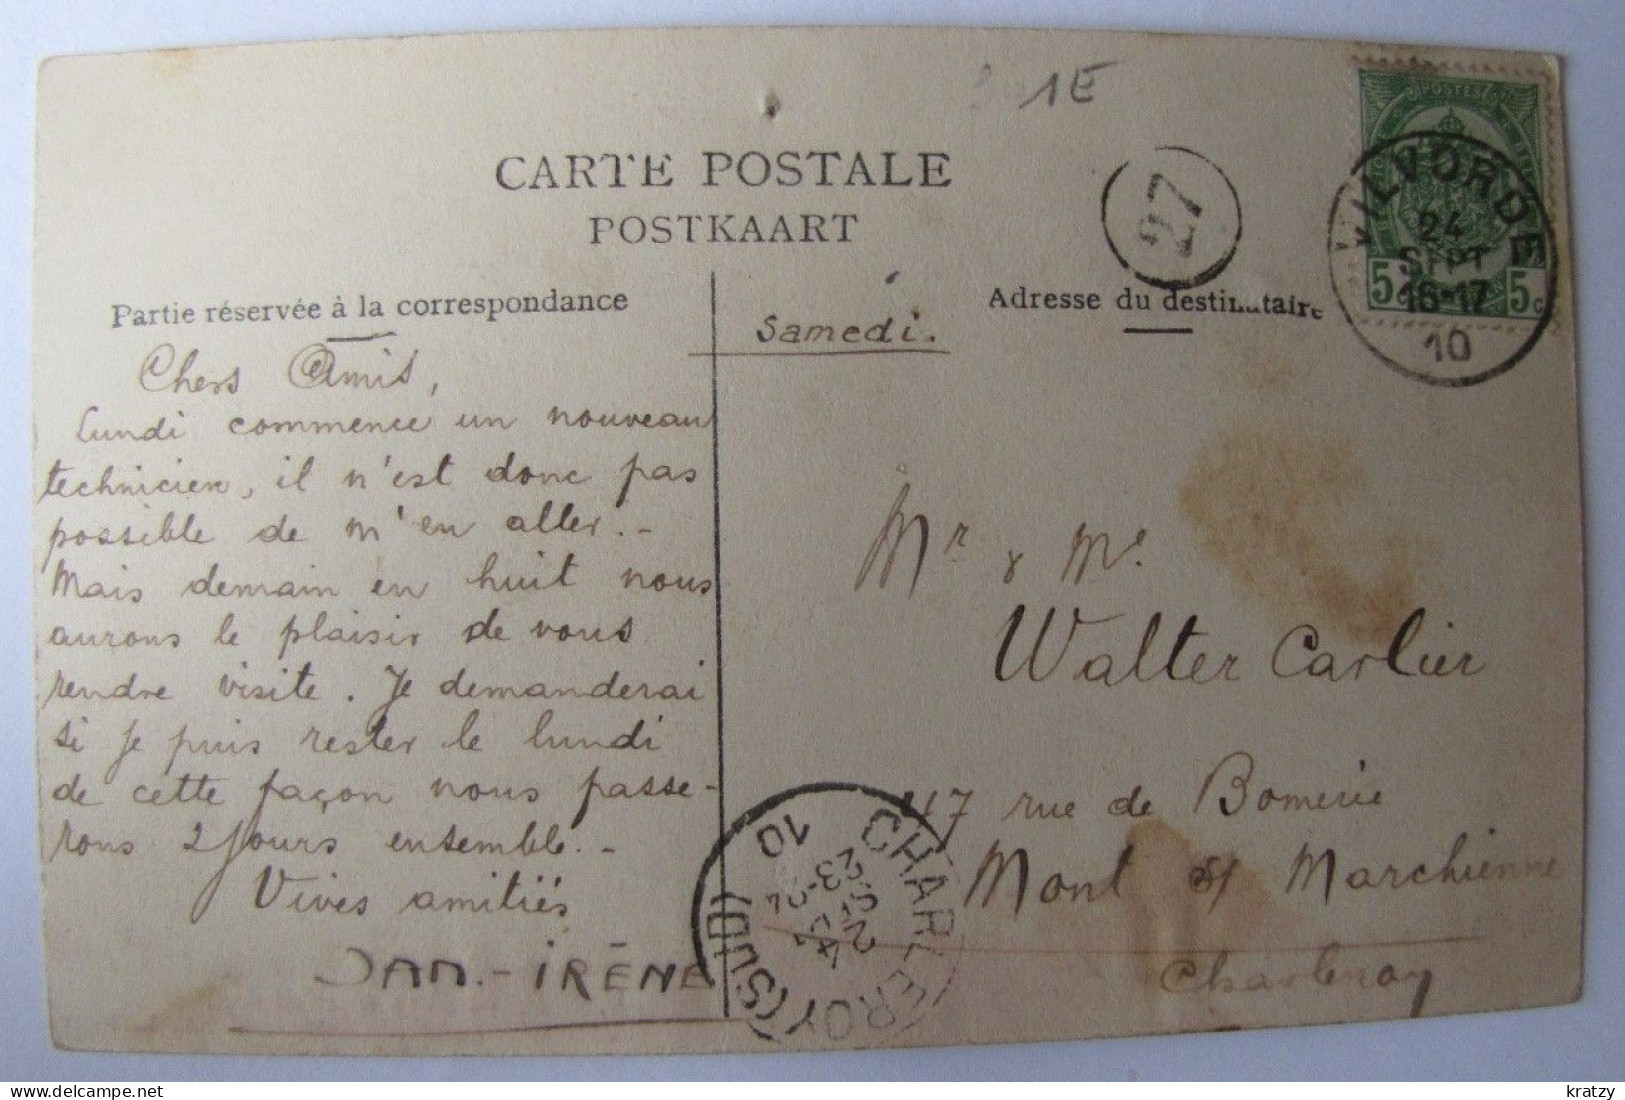 1E
CARTE POSTALE
POSTKAART
27
POSTES
VILVORDE
24
SEPT
16-17
10
5c 5c
Partie réservée à la correspondance
Adresse du destinataire
Samedi.
Chers Amis,
Lundi commence un nouveau
technicien, il n'est donc pas
possible de m'en aller. -
Mais demain en huit nous
aurons le plaisir de vous
rendre visite. Je demanderai
si je puis rester le lundi
de cette façon nous passe-
rons 2 jours ensemble. -
Vives amitiés
JAN.-IRÈNE
Mr & Me
Walter Carlier
47 rue de Bomerie
Mont s/ Marchienne
Charleroy
CHARLEROY (SUD)
10
kratzy